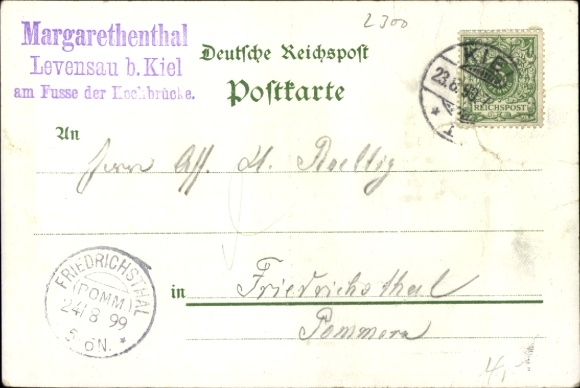 2300
Margarethenthal
Levensau b. Kiel
am Fusse der Hochbrücke.
Deutsche Reichspost
Postkarte
KIEL
23.8.99
REICHSPOST
An
Herrn Aff. H. Roellig
FRIEDRICHSTHAL
(POMM)
24/8 99
5-6N.
in Friedrichsthal
Pommern
4,-